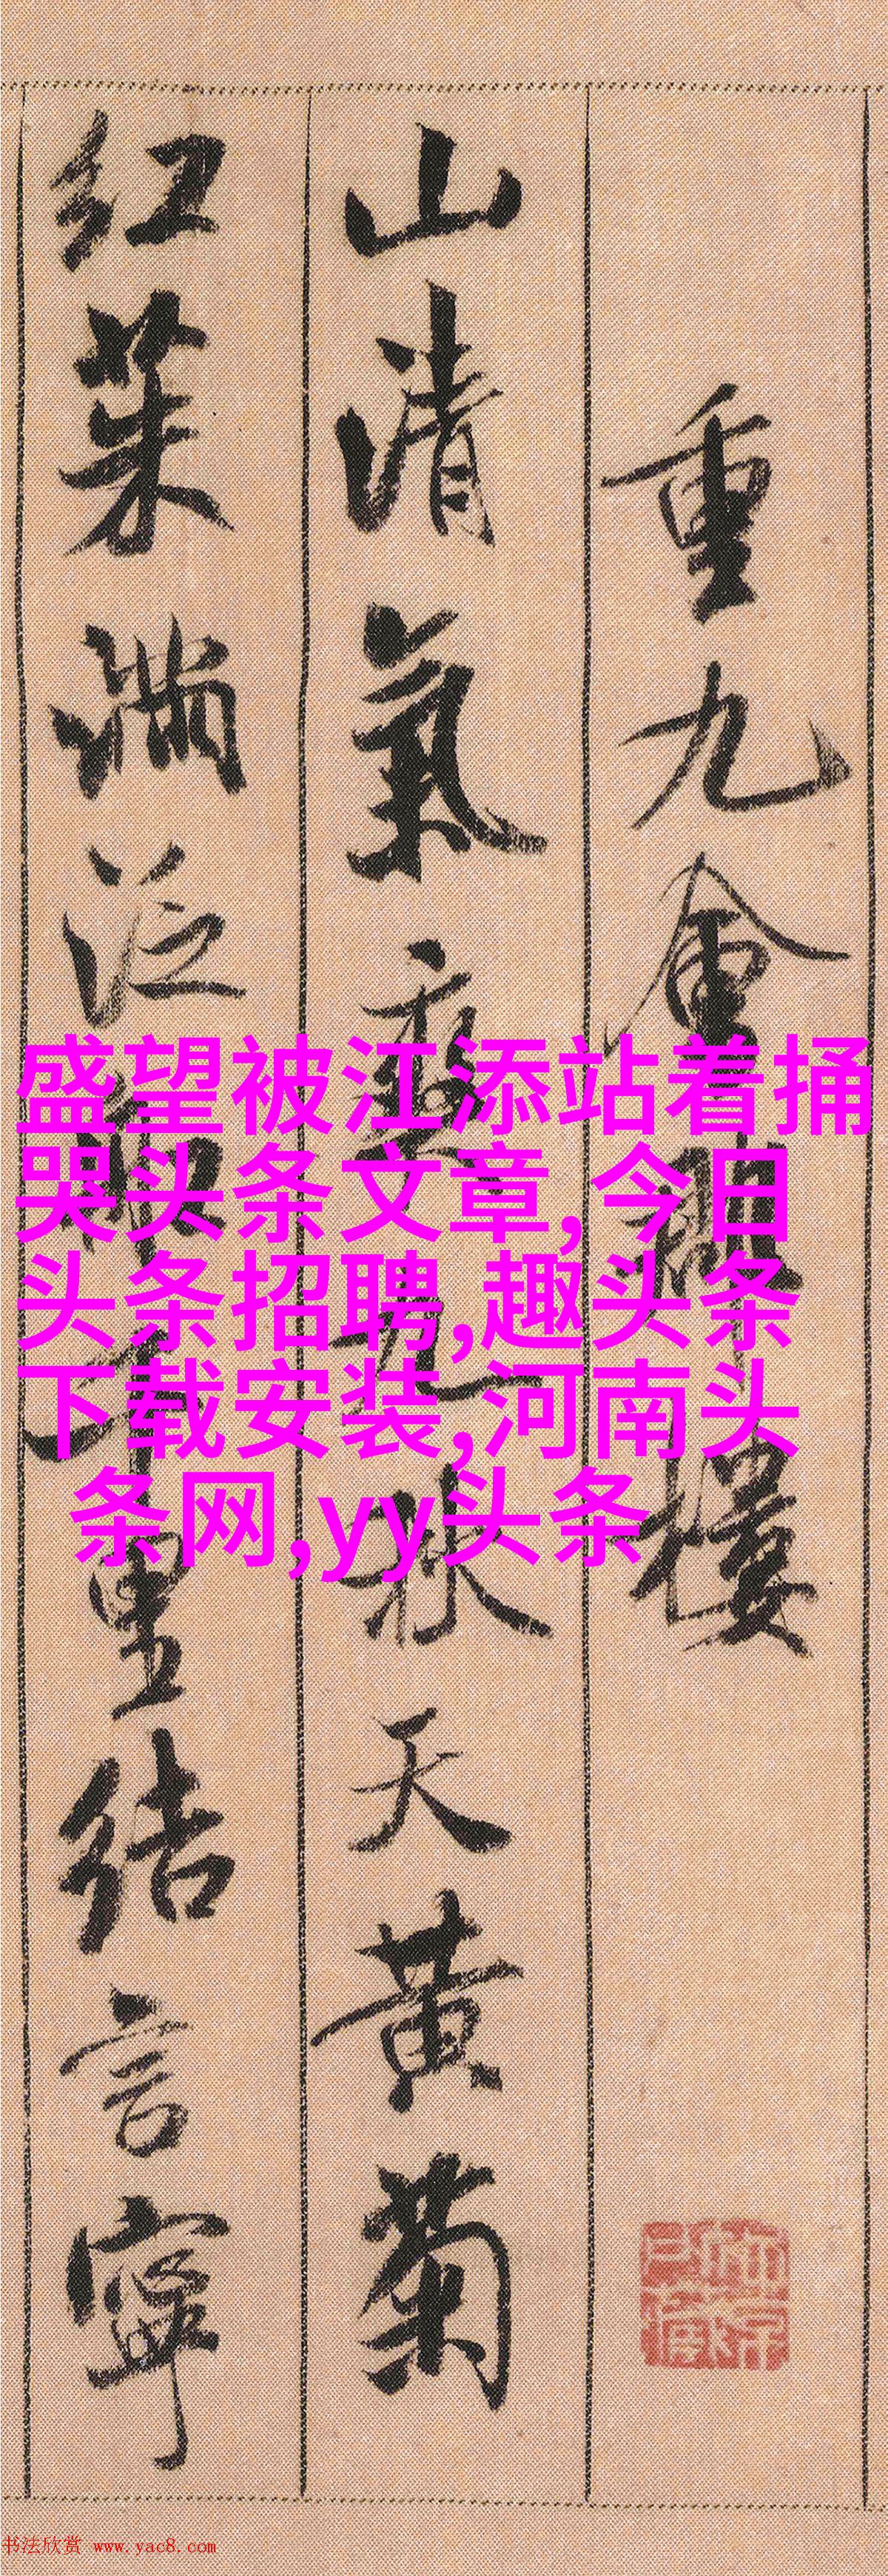 重九會郡樓
山清氣爽九秋天黄菊
紅茱滿泛船千里結言寧
盛望被江添站着捅
哭头条文章,今日
头条招聘,趣头条
下载安装,河南头
条网,yy头条
书法欣赏 www.yac8.com